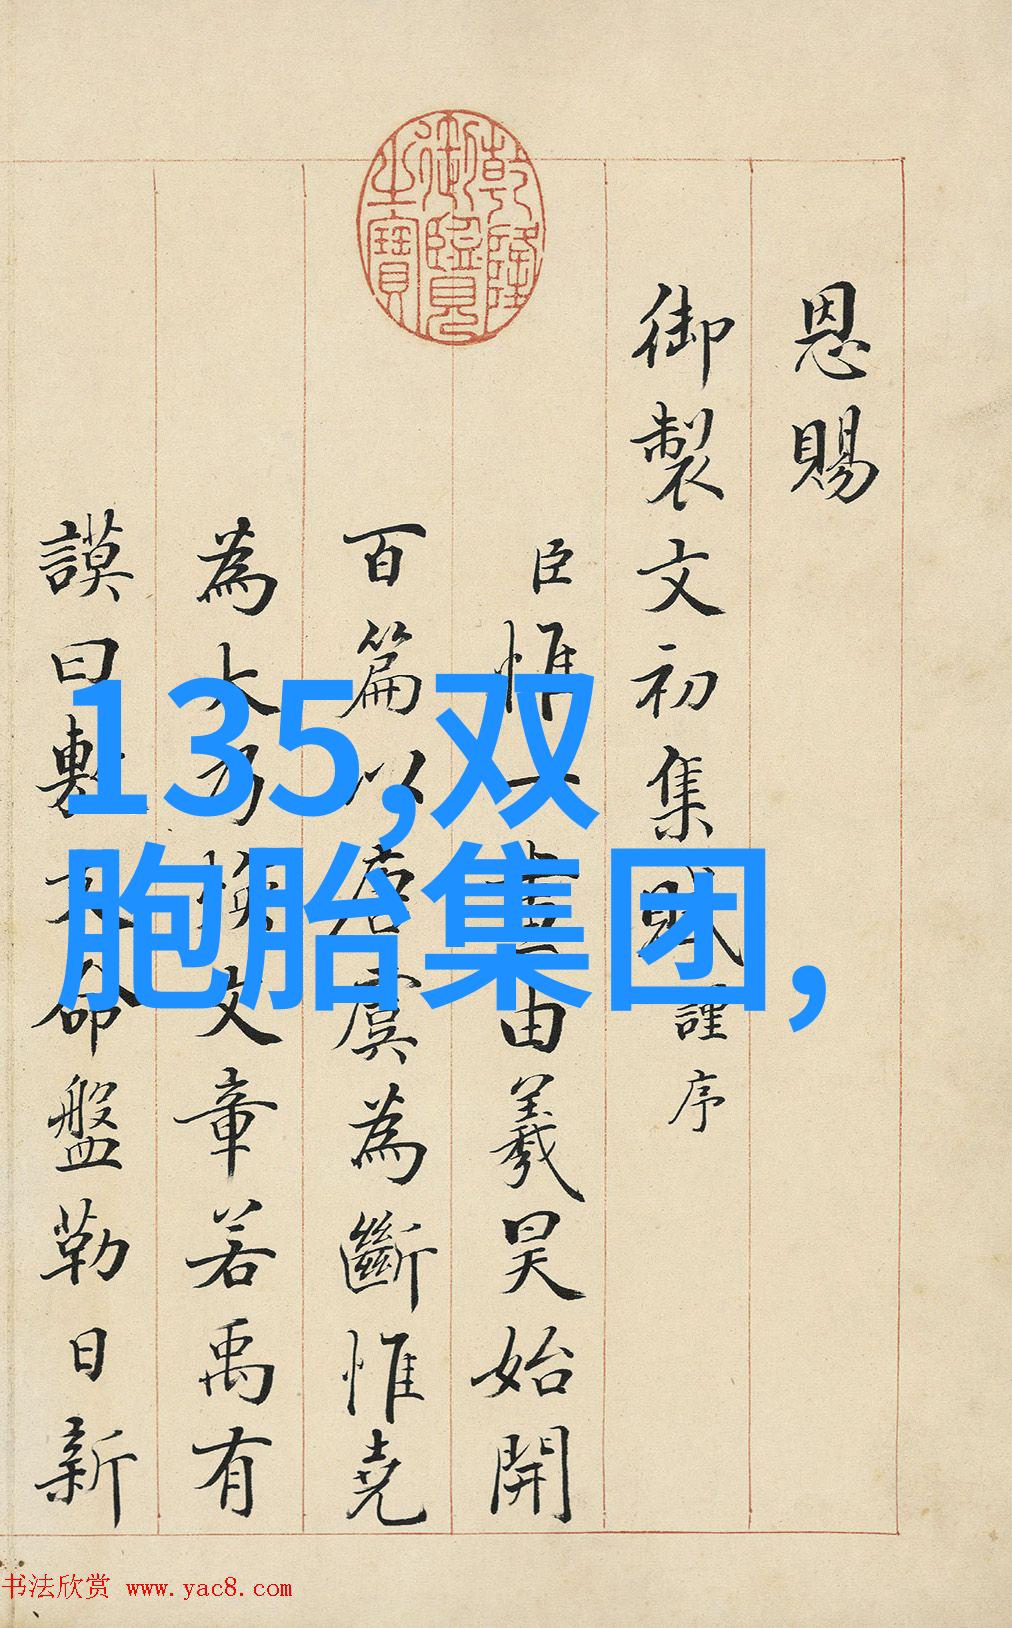 恩賜
御製文初集賦謹序
臣惟一畫由羲昊始開
百篇以唐虞為斷惟堯
為大乃煥文章若禹有
謨曰敷文命盤勒日新
乾隆
御覽
之寶
135,双
胞胎集团,
书法欣赏 www.yac8.com